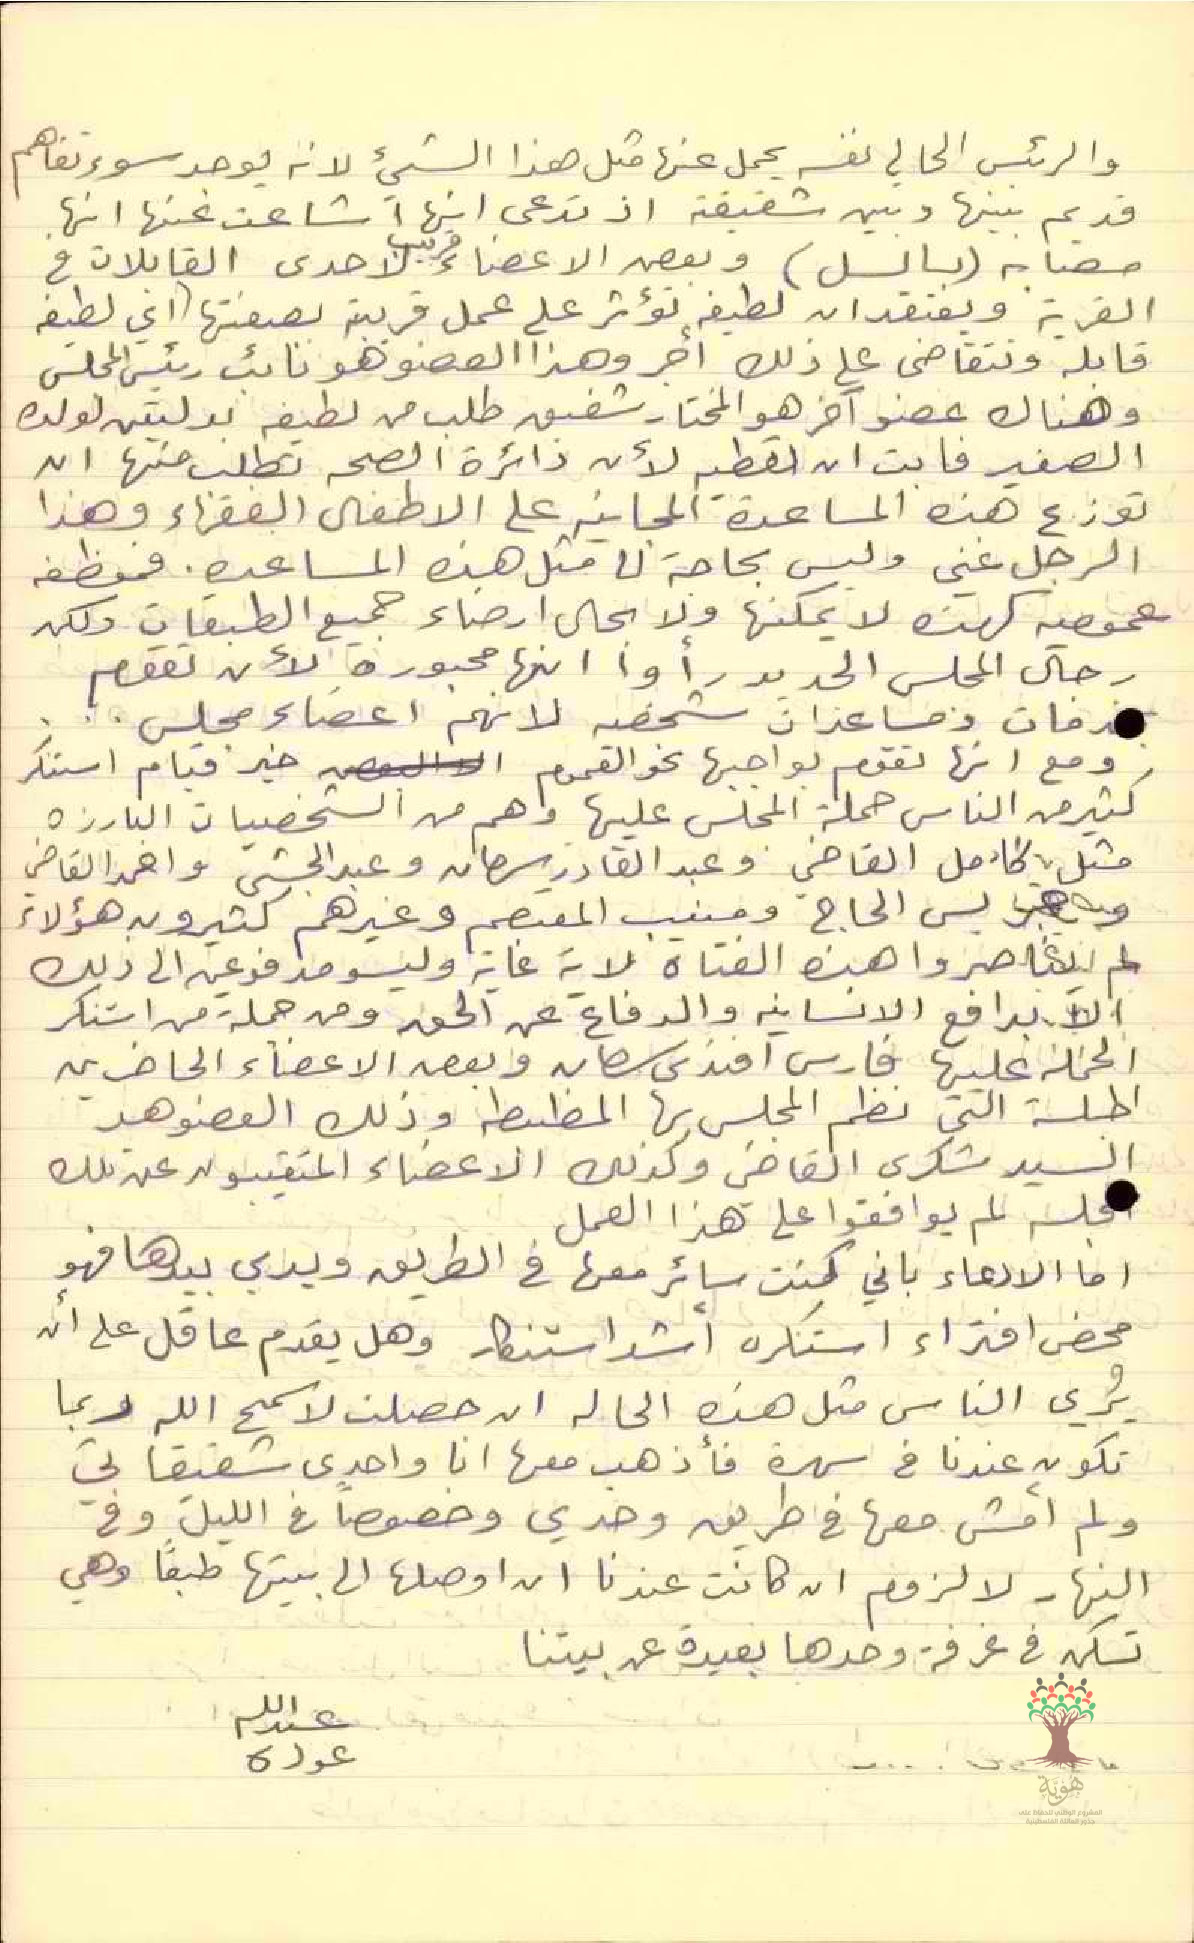 والرئيس الحالي نفسه يحمل عنها مثل هذا الشيئ لانه يوجد سوء تفاهم
قديم بينها وبين شقيقته اذ تدعي انها اشاعت عنها انها
مصابه (بالسل) وبعض الاعضاء قريب لاحدى القابلات في
القرية ويعتقد ان لطيفه تؤثر على عمل قريبته بصفتها (اي لطيفه
قابله وتتقاضى على ذلك أجر وهذا العضو هو نائب رئيس المجلس
وهناك عضو آخر هو المختار شفيق طلب من لطيفه بوليتين لولده
الصغير فابت ان تعطيه لأن دائرة الصحه تطلب منها ان
توزع هذه المساعدة المجانيه على الاطفال الفقراء وهذا
الرجل غني وليس بحاجة لمثل هذه المساعده. فموظفه
عموميه كهذه لا يمكنها ولا بحال ارضاء جميع الطبقات ولكن
رجال المجلس الجديد رأوا انها مجبورة لأن تقوم
بخدمات ومساعدات شخصيه لانهم اعضاء مجلس ..
ومع انها تقوم بواجبها نحو العموم خير قيام استنكر
كثير من الناس حملة المجلس عليها وهم من الشخصيات البارزه
مثل كامل القاضي وعبد القادر سرحان وعبد الجشي واحمد القاضي
يس الحاج ومنيب المعتصم وغيرهم كثيرون هؤلاء
لم يناصروا هذه الفتاة لاية غاية وليسو مدفوعين الى ذلك
الا بدافع الانسانيه والدفاع عن الحق ومن جملة من استنكر
الحملة عليها فارس افندي سرحان وبعض الاعضاء الحاضرين
الجلسة التي نظم المجلس بها المضبطه وذلك العضو هو
السيد شكري القاضي وكذلك الاعضاء المتغيبون عن تلك
الجلسه لم يوافقوا على هذا العمل
اما الادعاء باني كنت سائر معها في الطريق ويدي بيدها فهو
محض افتراء استنكره أشد استنكار وهل يقدم عاقل على أن
يُري الناس مثل هذه الحاله ان حصلت لا سمح الله ربما
تكون عندنا في سهرة فأذهب معها انا واحدى شقيقاتي
ولم أمش معها في طريق وحدي وخصوصاً في الليل وفي
النهار لا لزوم ان كانت عندنا ان اوصلها الى بيتها طبعًا وهي
تسكن في غرفة وحدها بعيدة عن بيتنا
عبدالله
عودة
هُوِيَّة
المشروع الوطني للحفاظ على
جذور العائلة الفلسطينية